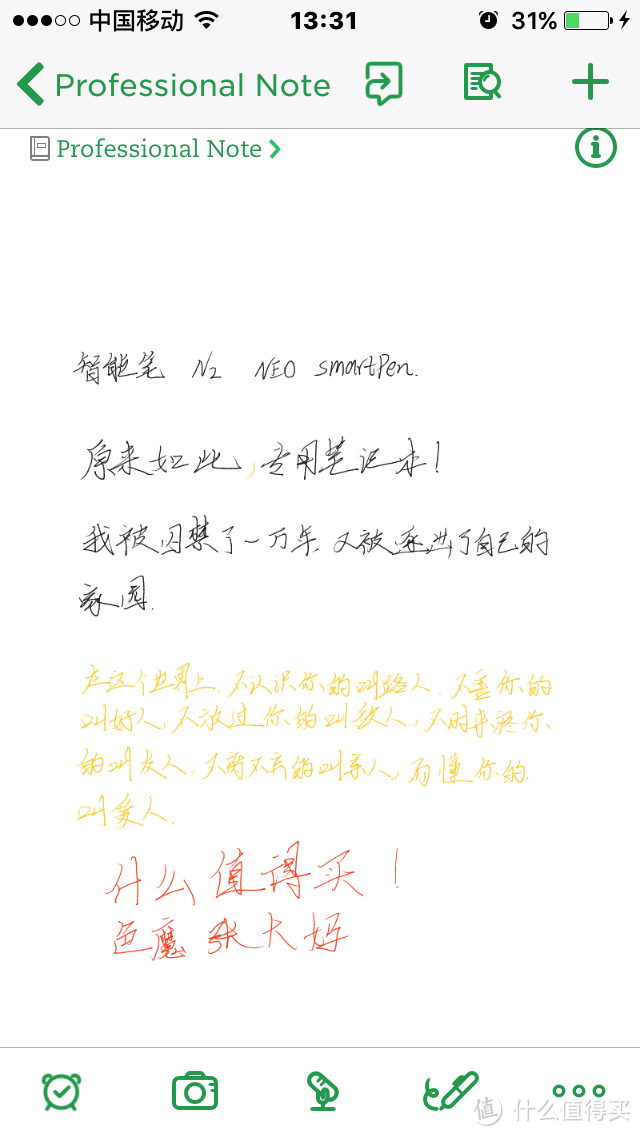 中国移动 13:31 31%
Professional Note
Professional Note
智能笔 N2 NEO smartPen.
原来如此,专用笔记本!
我被囚禁了一万年.又被逐出了自己的
家园.
在这个世界上.不认识你的叫路人.不害你的
叫好人,不放过你的叫敌人,不时来疼你
的叫友人,不离不弃的叫亲人,而懂你的
叫爱人.
什么值得买!
色魔张大妈
值 什么值得买